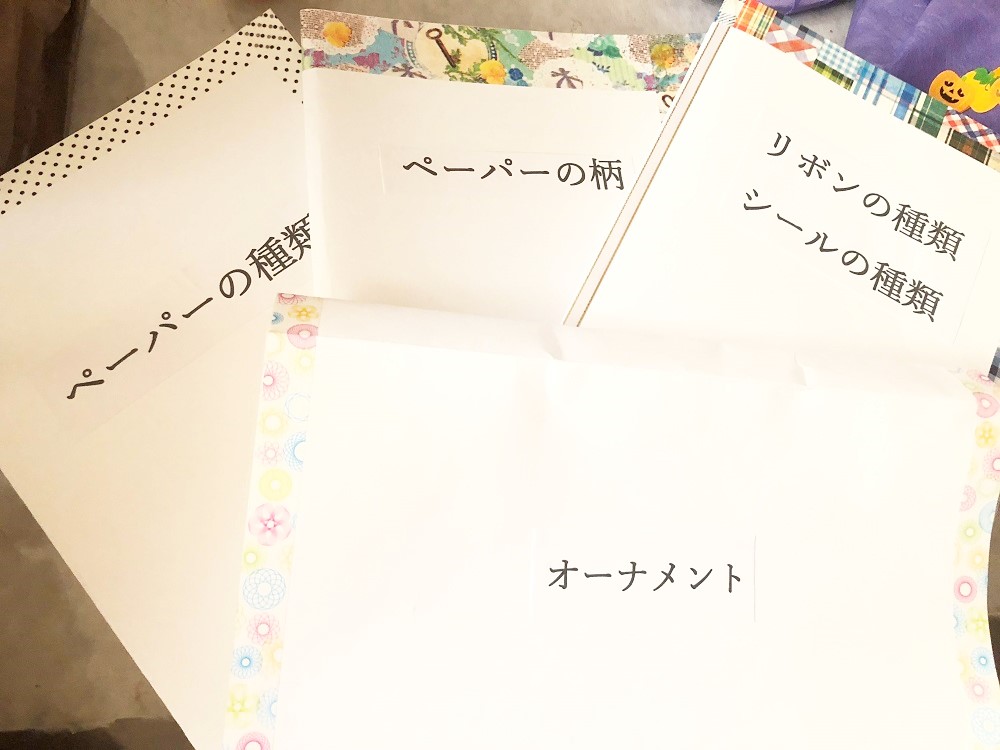 ペーパーの種類
ペーパーの柄
リボンの種類
シールの種類
オーナメント